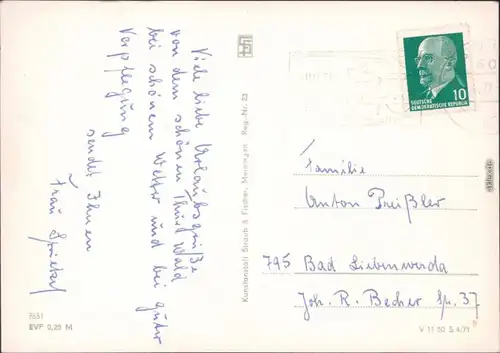 Viele liebe Urlaubsgrüße
von dem schönen Thür. Wald
bei schönem Wetter und bei guter
Verpflegung
sendet Ihnen
Frau
Kunstanstalt Straub & Fischer, Meiningen Reg.-Nr. 23
10
DEUTSCHE
DEMOKRATISCHE REPUBLIK
Familie
Anton Preißler
795 Bad Liebenwerda
Joh. R. Becher Sp. 37
7651
EVP 0,25 M
V 11 50 S 4/71